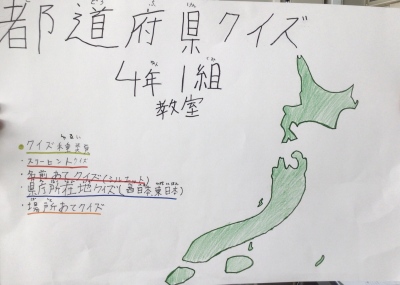 都道府県クイズ
4年1組
教室
クイズ種類
・スリーヒントクイズ
・名前あてクイズ(シルエット)
・県庁所在地クイズ(西日本,東日本)
・場所あてクイズ